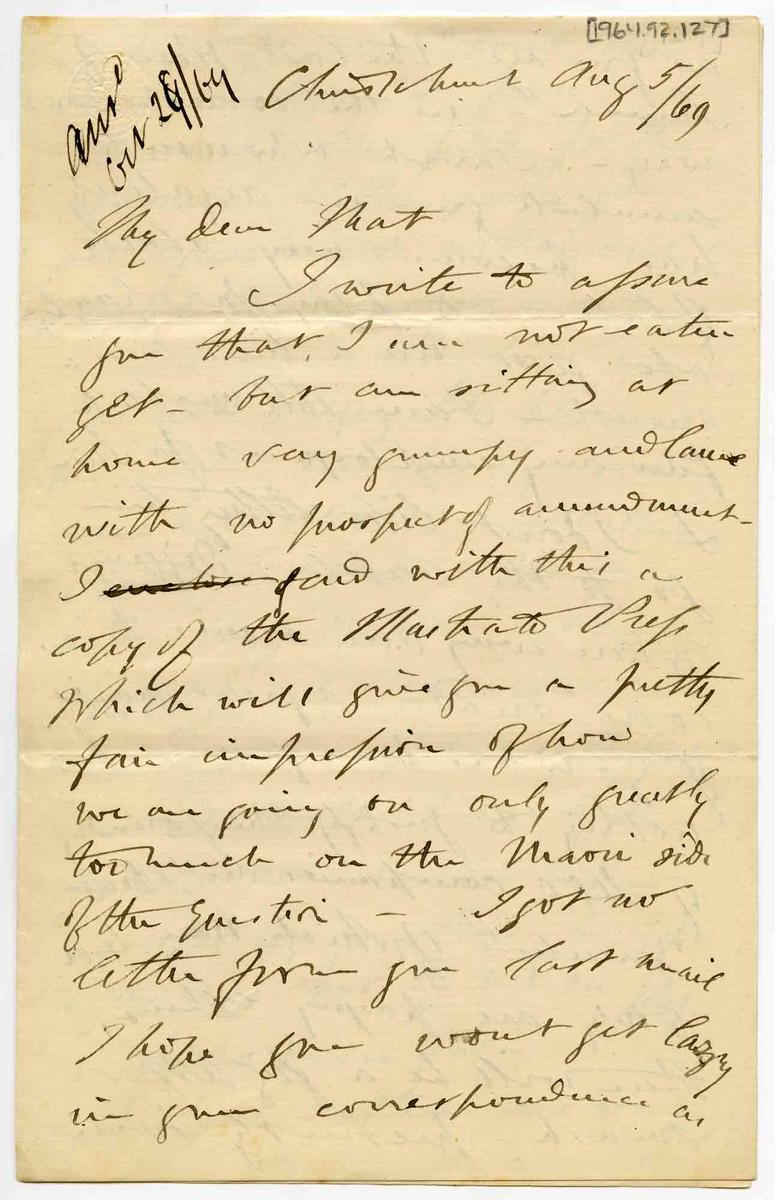 [1964.92.127]
Ansd
Oct 28/69
Christchurch Aug 5/69
My dear Mat
I write to assure
you that I am not eaten
yet - but am sitting at
home very grumpy and lame
with no prospect of amendment -
I enclose send with this a
copy of the Illustrated Press
which will give you a pretty
fair impression of how
we are going on only greatly
too much on the Maori side
of the Question - I got no
letter from you last mail
I hope you wont get lazy
in your correspondence as